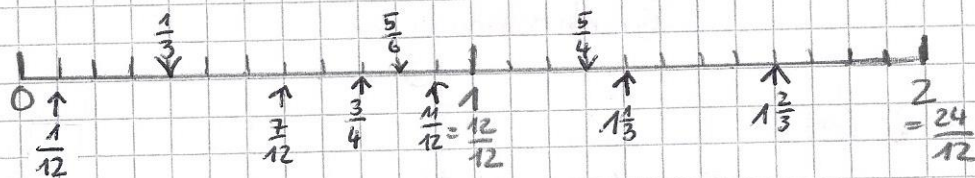 1/3 5/6 5/4
0 1 2
1/12 7/12 3/4 11/12 = 12/12 1 1/3 1 2/3 = 24/12